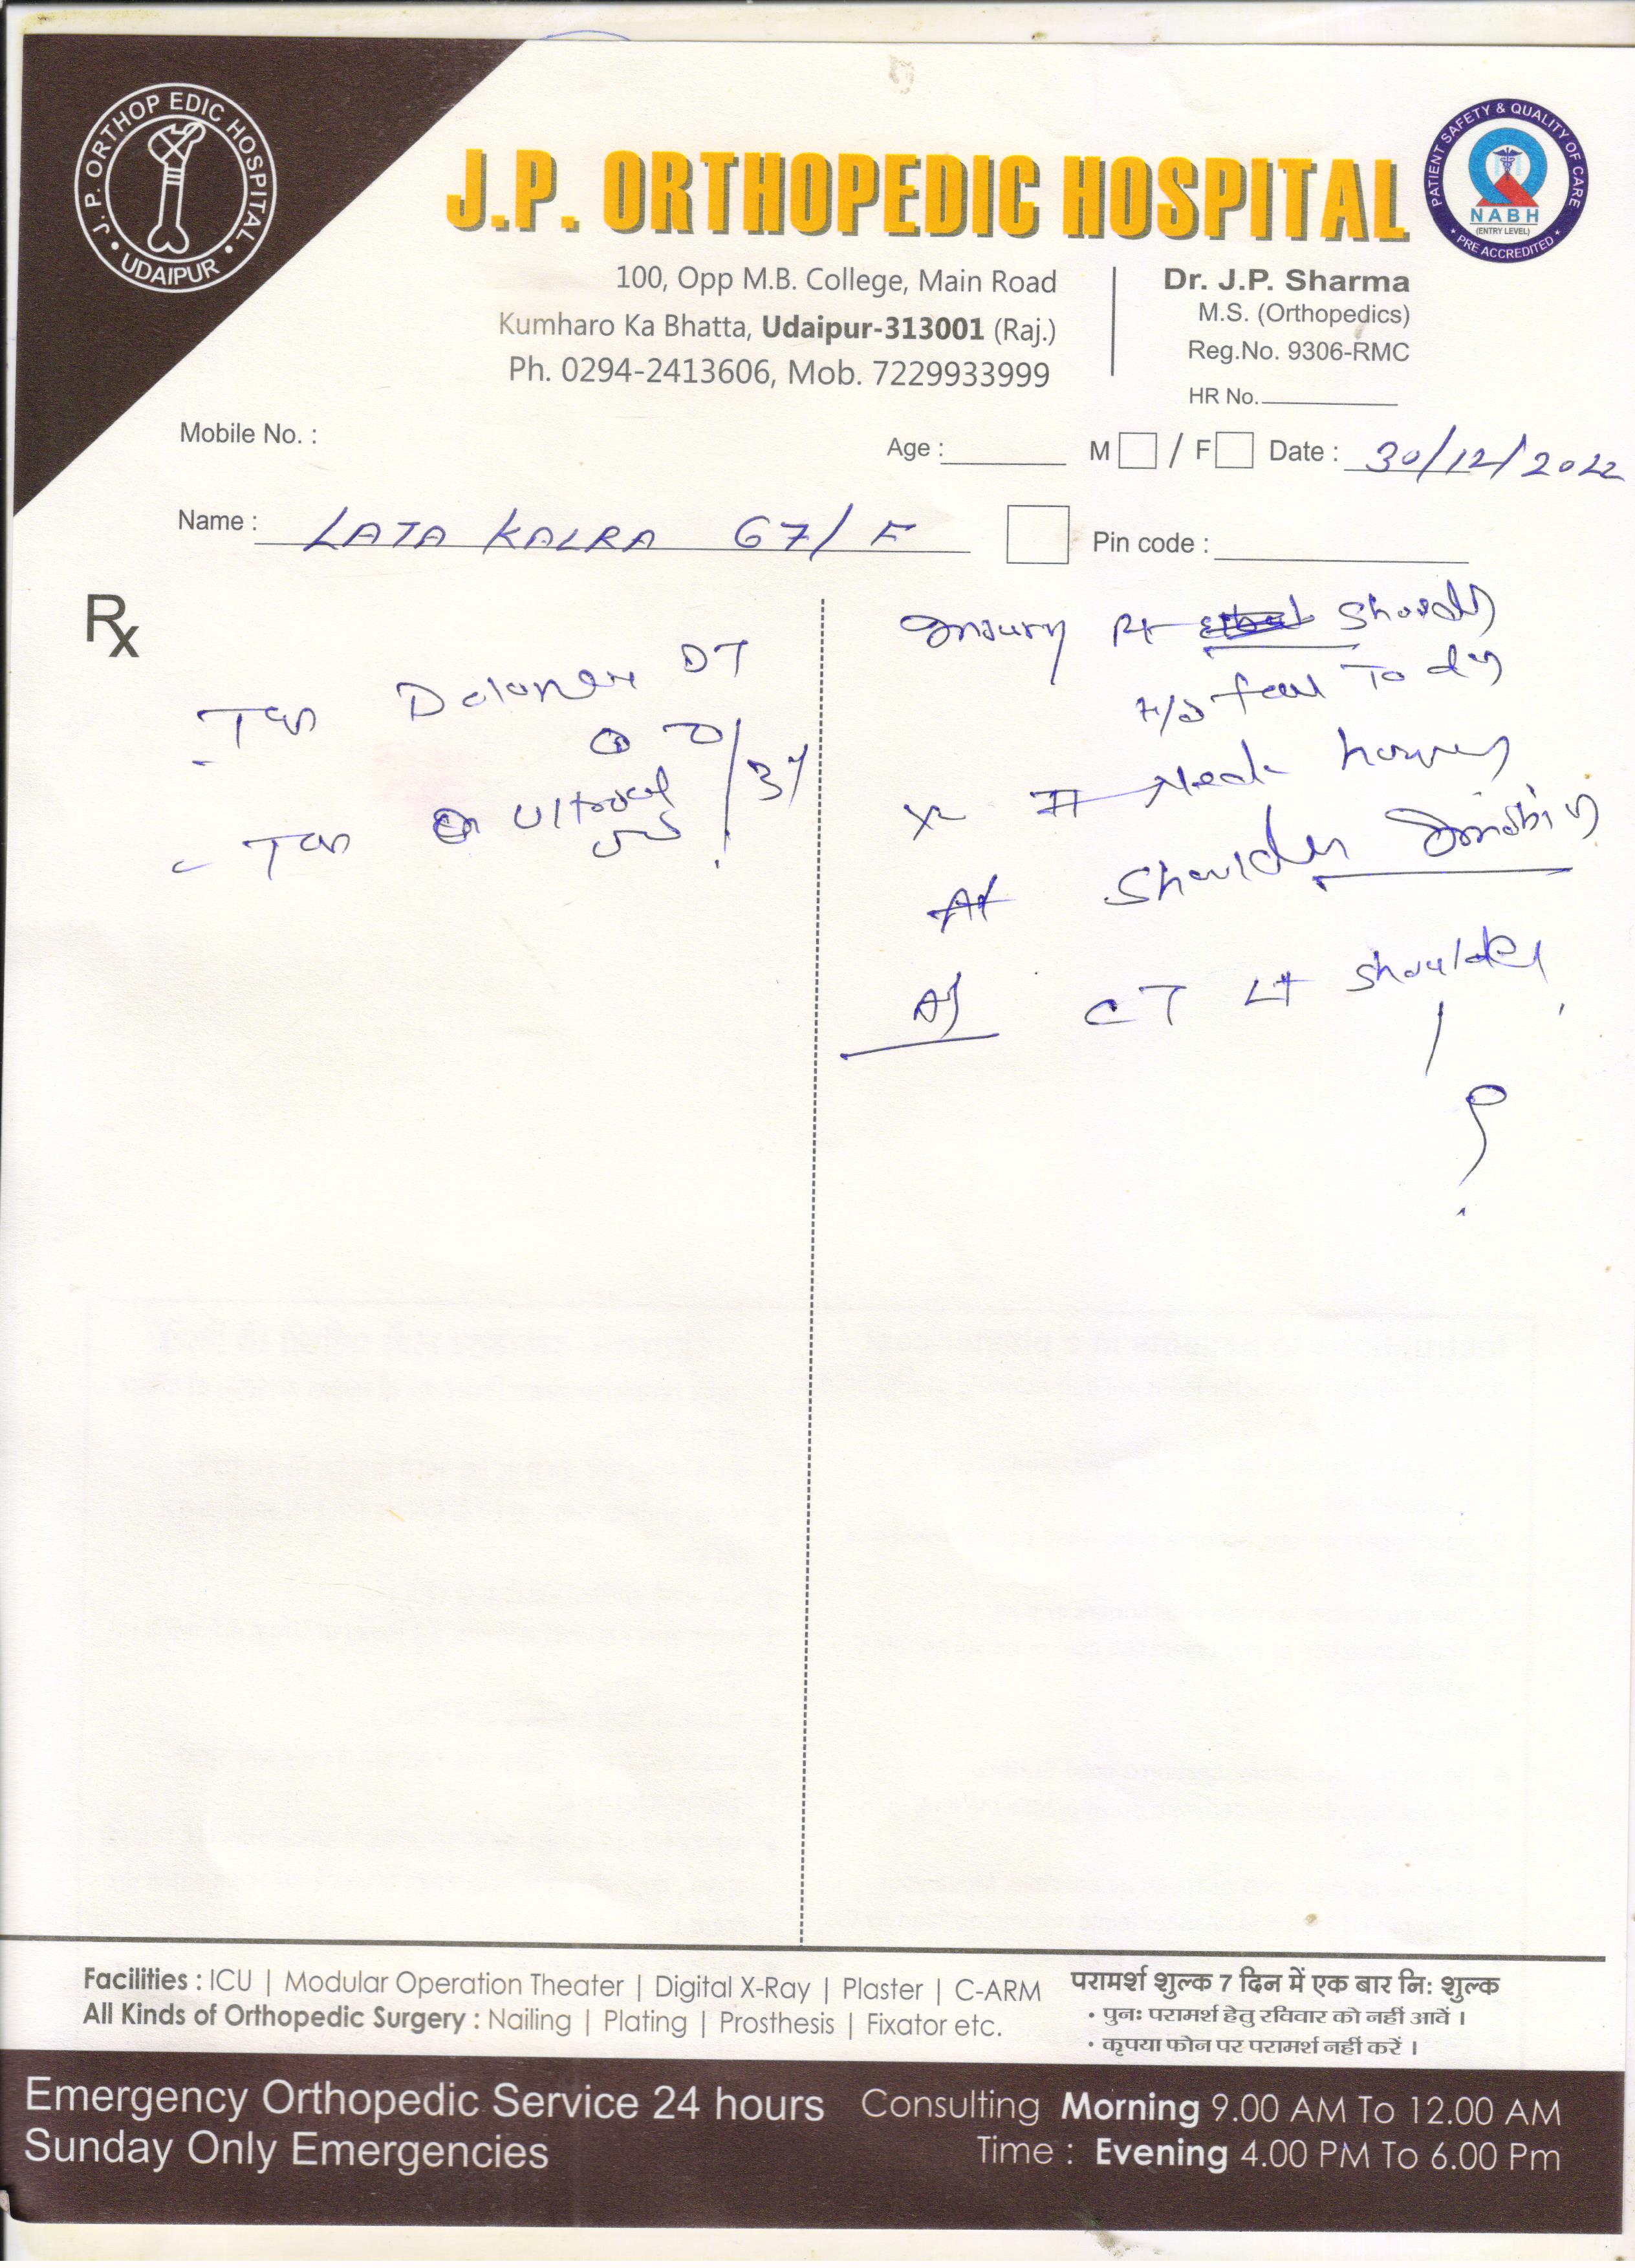 J. P. ORTHOP EDIC HOSPITAL • UDAIPUR •
J.P. ORTHOPEDIC HOSPITAL
PATIENT SAFETY & QUALITY OF CARE
NABH
(ENTRY LEVEL)
• PRE ACCREDITED •
100, Opp M.B. College, Main Road
Kumharo Ka Bhatta, Udaipur-313001 (Raj.)
Ph. 0294-2413606, Mob. 7229933999
Dr. J.P. Sharma
M.S. (Orthopedics)
Reg.No. 9306-RMC
HR No.
Mobile No. :
Age : M / F Date : 30/12/2022
Name : LATA KALRA 67/F Pin code :
Rx
Injury Rt Should
H/o fall To day
X # Neck
Shoulder
CT Lt Shoulder
Tab DT
Tab
Facilities : ICU | Modular Operation Theater | Digital X-Ray | Plaster | C-ARM
All Kinds of Orthopedic Surgery : Nailing | Plating | Prosthesis | Fixator etc.
परामर्श शुल्क 7 दिन में एक बार नि: शुल्क
• पुनः परामर्श हेतु रविवार को नहीं आवें ।
• कृपया फोन पर परामर्श नहीं करें ।
Emergency Orthopedic Service 24 hours
Sunday Only Emergencies
Consulting Morning 9.00 AM To 12.00 AM
Time : Evening 4.00 PM To 6.00 Pm